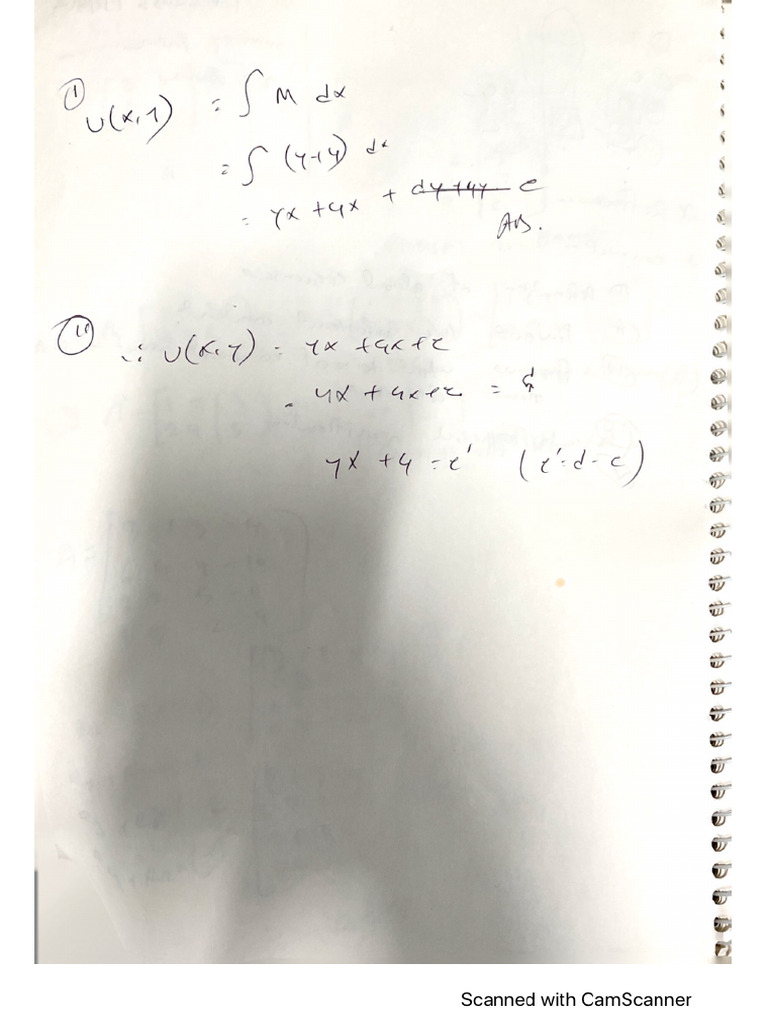 ① U(x,y) = ∫ M dx
= ∫ (y+4) dx
= yx + 4x + dy + 4y c
Ans.
② ∴ U(x,y) = yx + 4x + c
= yx + 4x + c = d
yx + 4 = c' (c' = d - c)
Scanned with CamScanner